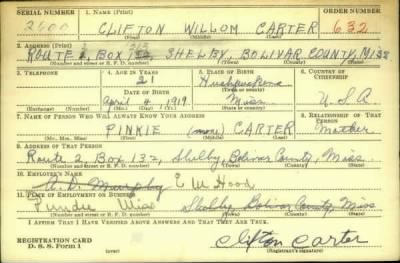 SERIAL NUMBER 1. NAME (Print) ORDER NUMBER
2600 CLIFTON WILLOM CARTER 632
2. ADDRESS (Print)
ROUTE BOX SHELBY, BOLIVAR COUNTY, MISS
(Number and street or R. F. D. number) (Town) (County) (State)
3. TELEPHONE 4. AGE IN YEARS 5. PLACE OF BIRTH 6. COUNTRY OF CITIZENSHIP
21 Hushpuckena
DATE OF BIRTH (Town or county)
April 4, 1919 Miss. U.S.A
(Exchange) (Number) (Mo.) (Day) (Yr.) (State or country)
7. NAME OF PERSON WHO WILL ALWAYS KNOW YOUR ADDRESS 8. RELATIONSHIP OF THAT PERSON
PINKIE (none) CARTER Mother
(Mr., Mrs., Miss) (First) (Middle) (Last)
9. ADDRESS OF THAT PERSON
Route 2, Box 132, Shelby, Bolivar County, Miss.
(Number and street or R. F. D. number) (Town) (County) (State)
10. EMPLOYER'S NAME
Murphy E W Hood
11. PLACE OF EMPLOYMENT OR BUSINESS
Miss Shelby, Bolivar County, Miss
(Number and street or R. F. D. number) (Town) (County) (State)
I AFFIRM THAT I HAVE VERIFIED ABOVE ANSWERS AND THAT THEY ARE TRUE.
REGISTRATION CARD Clifton Carter
D. S. S. Form 1 (over) (Registrant's signature)